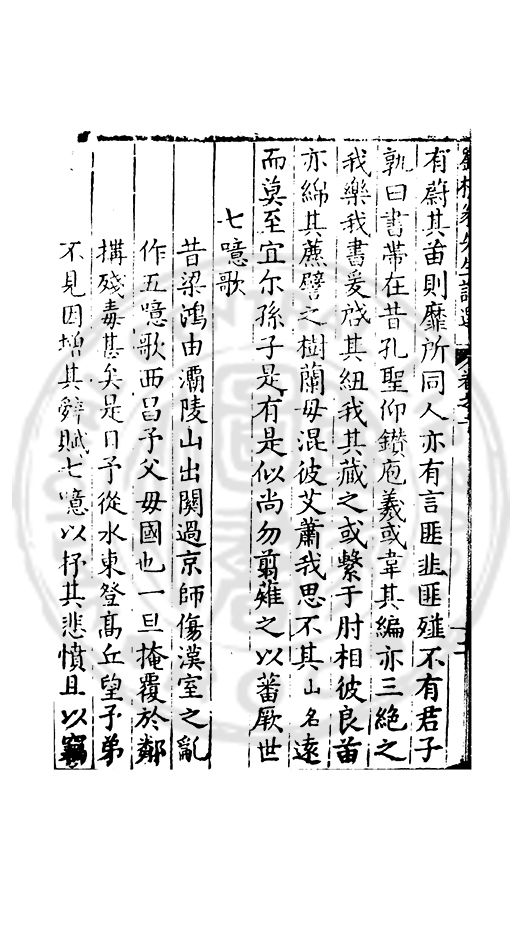 有蔚其苗則靡所同人亦有言匪韭匪薤不有君子
孰曰書帶在昔孔聖仰鑚庖羲或韋其編亦三絶之
我樂我書爰啓其紐我其藏之或繫于肘相彼良苗
亦綿其蔗譬之樹蘭毋混彼艾蕭我思不其山名遠
而莫至宜尔孫子是有是似尚勿翦薙之以蕃厥世
七噫歌
昔梁鴻由灞陵山出關過京師傷漢室之亂
作五噫歌西昌予父母國也一旦掩覆於鄰
搆殘毒甚矣是日予從水東登髙丘望子弟
不見因増其辭賦七噫以抒其悲憤且以竊